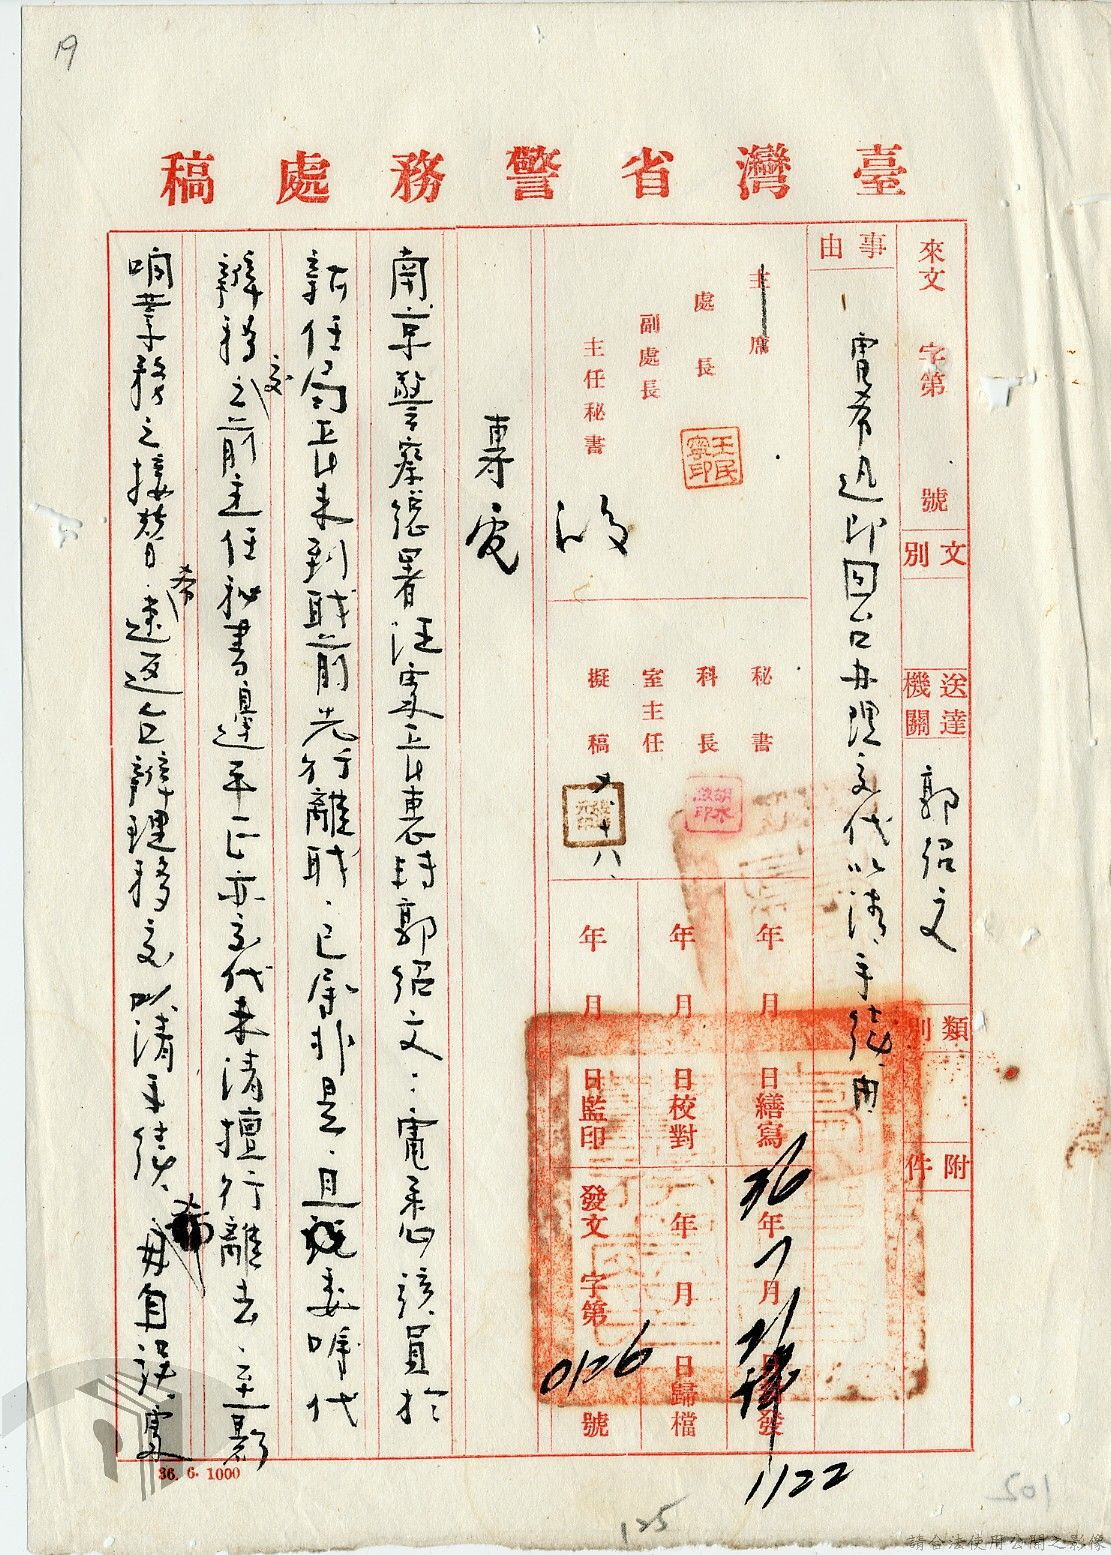 19
臺灣省警務處稿
來文 字第 號
文別
送達機關 郭紹文
類別
附件
事由
電希迅即回台办理交代以清手續由
主席
處長
王民寧印
副處長
主任秘書
秘書
科長
室主任
擬稿
十八
年 月 日繕寫
年 月 日校對
年 月 日監印
36年7月 日 發
年 月 日歸檔
發文 字第 0126 號
1122
專電
南京警察總署汪 長惠轉郭紹文：電悉該員於
新任局長未到職前先行離職，已屬非是，且 委 代
辦移交之前主任秘書邊平正亦交代未清擅行離去，至影
响業務之接替，希速返台辦理移交以清手續，毋自誤。處
36. 6. 1000
125
102
請合法使用公開之影像